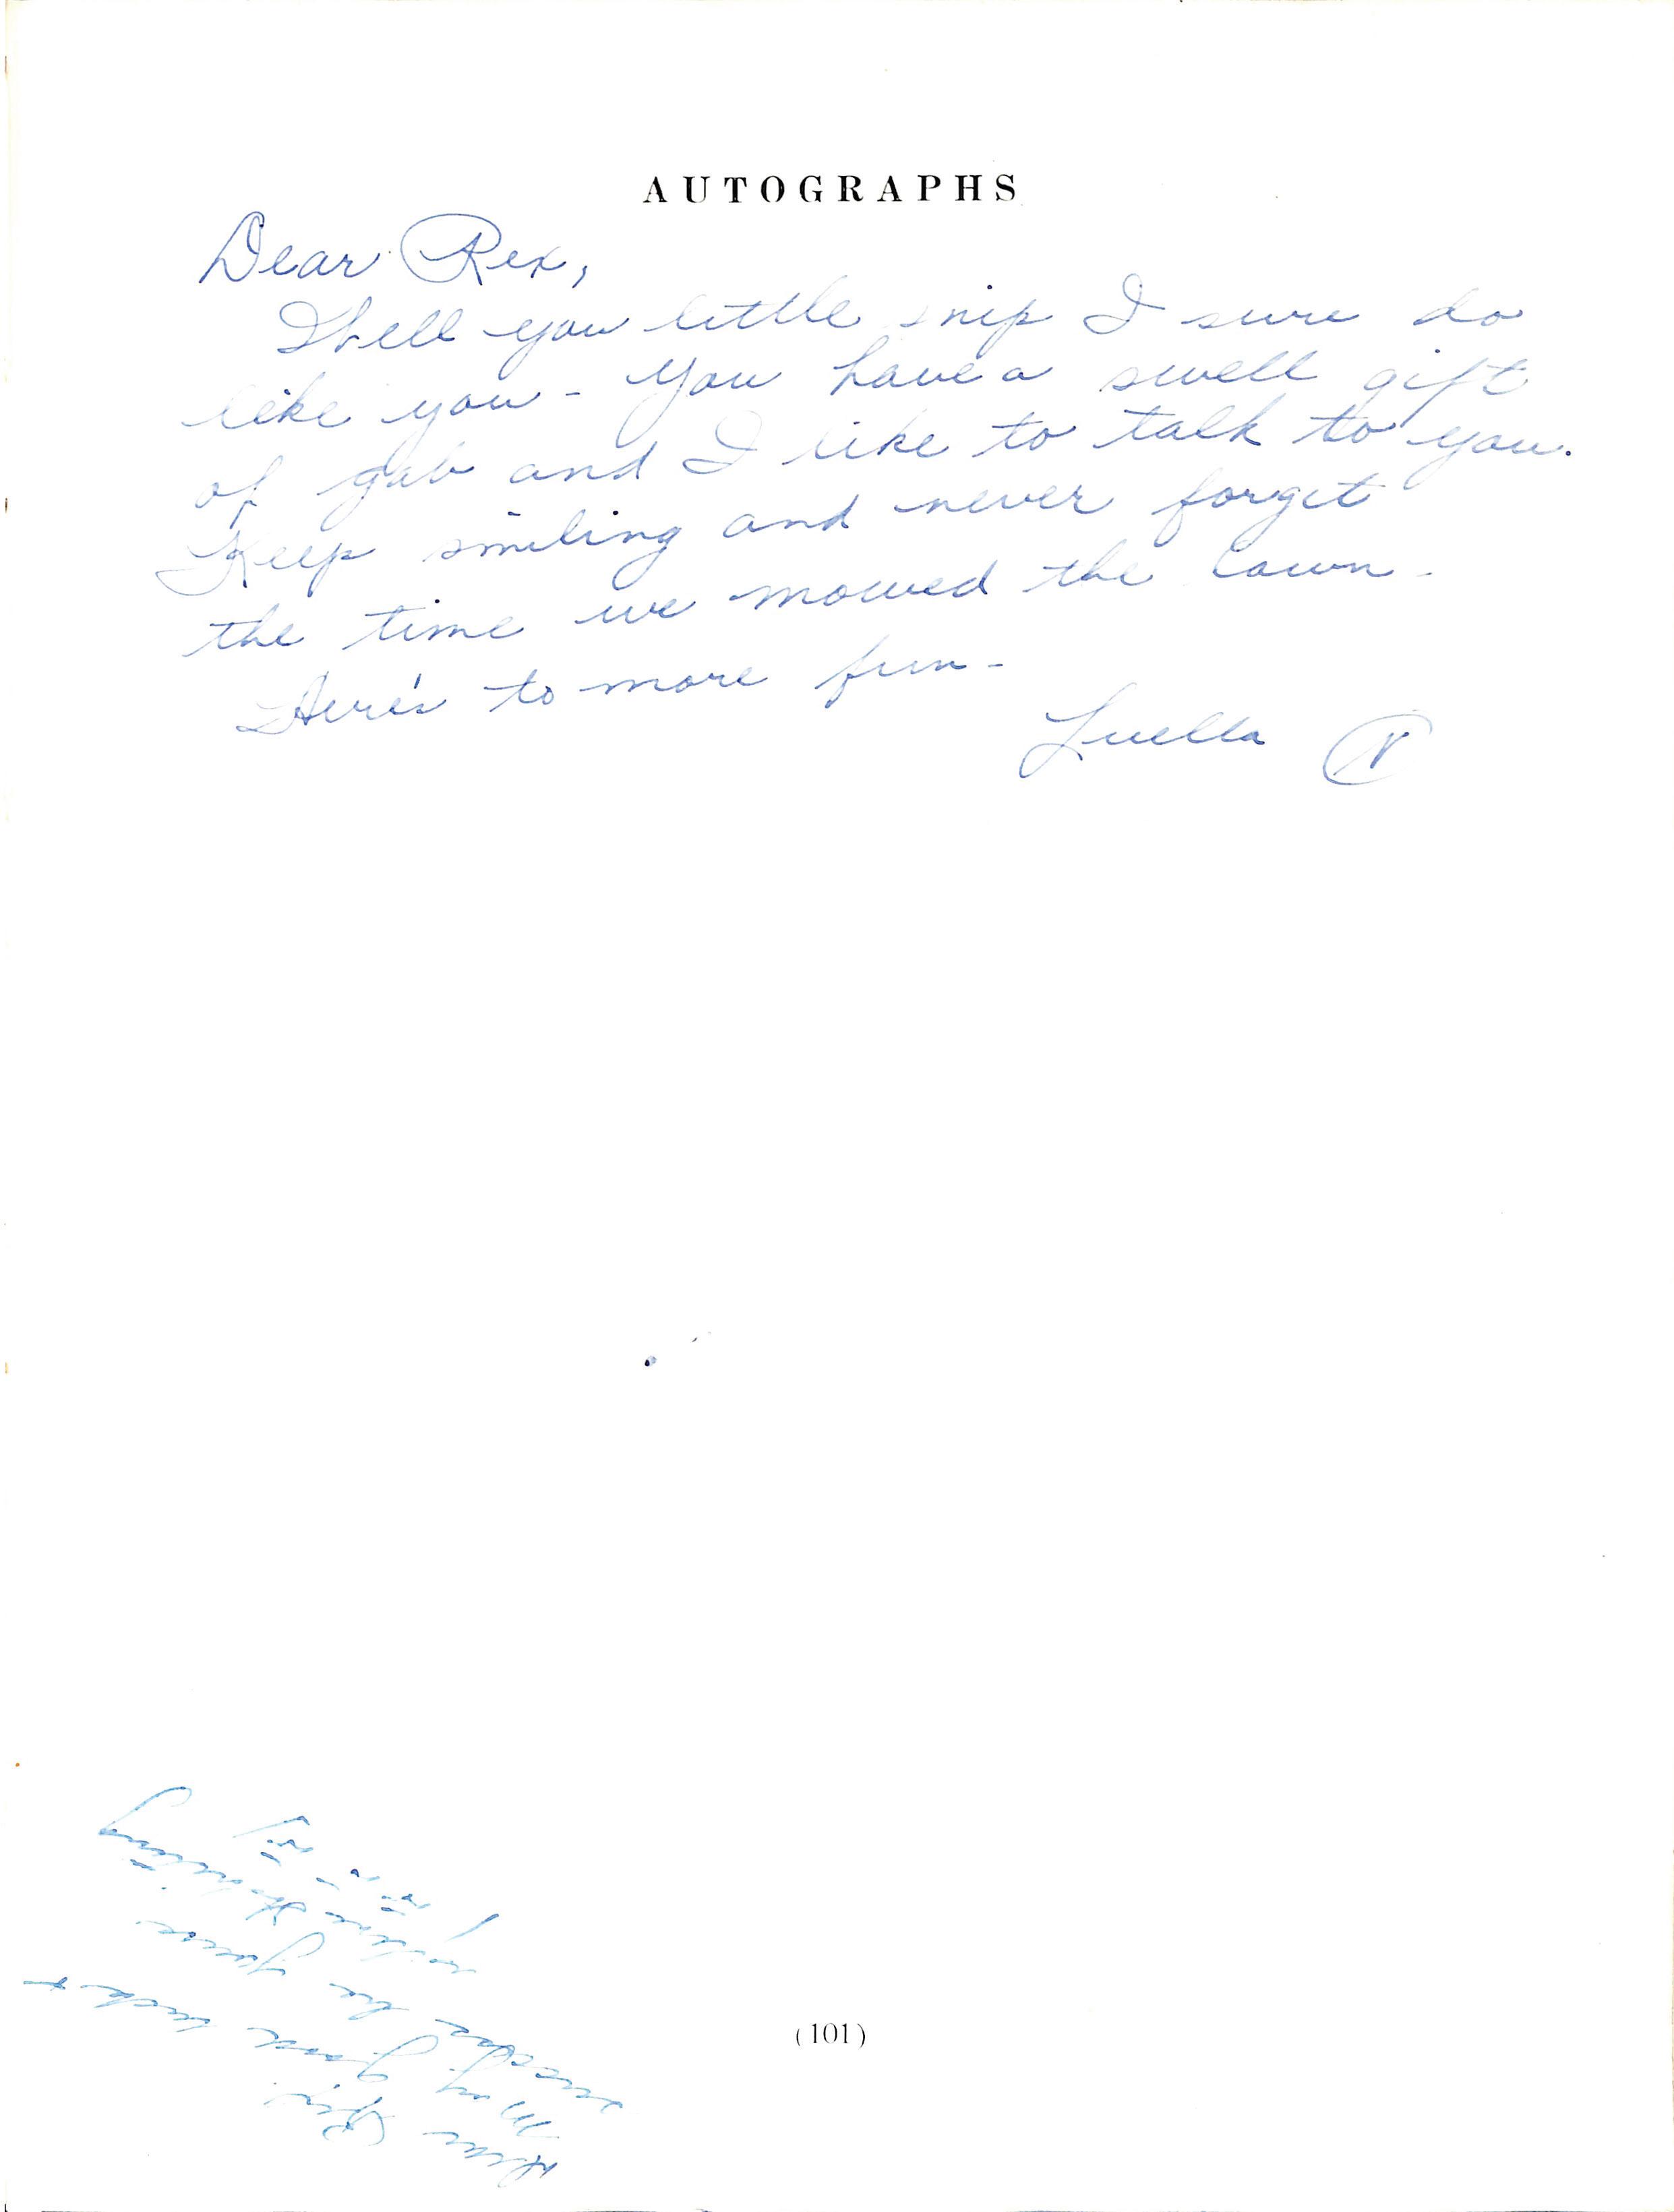 AUTOGRAPHS
Dear Rex,
Well you little snip I sure do
like you - You have a swell gift
of gab and I like to talk to you.
Keep smiling and never forget
the time we mowed the lawn -
Here's to more fun -
Luella N
Dear Rex
May good luck &
success be yours
Sincerely
(101)